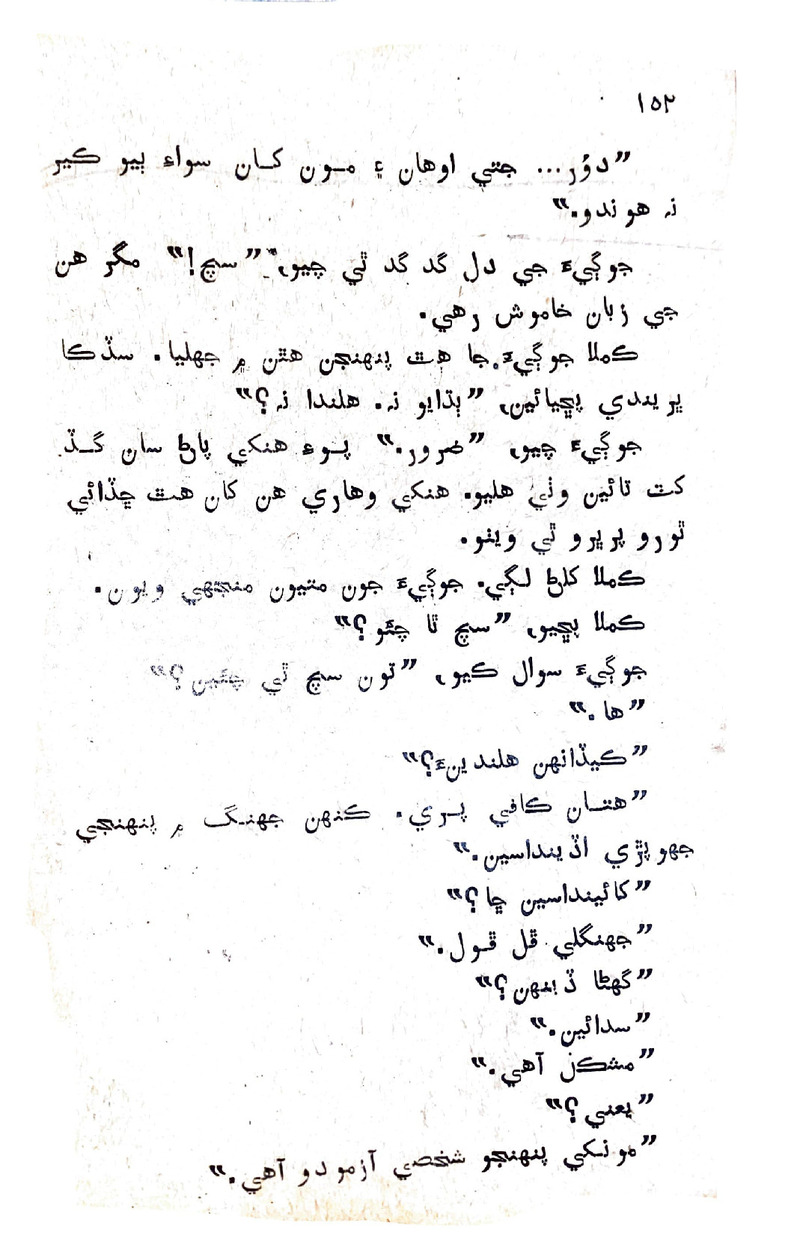 ١٥٢
”دؤر... جتي اوهان ۽ مون کان سواءِ ٻيو ڪير
نہ هوندو.“
جوڳيءَ جي دل گد گد ٿي چيو، ”سچ!“ مگر هن
جي زبان خاموش رهي.
ڪملا جوڳيءَ جا هٿ پنهنجن هٿن ۾ جهليا. سڏڪا
ڀريندي پڇيائين، ”ٻڌايو نہ. هلندا نہ؟“
جوڳيءَ چيو، ”ضرور.“ پوءِ هنکي پاڻ سان گڏ
کٽ تائين وٺي هليو. هنکي وهاري هن کان هٿ ڇڏائي
ٿورو پرڀرو ٿي ويٺو.
ڪملا کلڻ لڳي. جوڳيءَ جون منڊيون منجهي ويون.
ڪملا پڇيو، ”سچ ٿا چئو؟“
جوڳيءَ سوال ڪيو، ”تون سچ ٿي چئين؟“
”ها.“
”ڪيڏانهن هلندينءَ؟“
”هتان ڪافي پري. ڪنهن جهنگ ۾ پنهنجي
جهوپڙي اڏينداسين.“
”کائينداسين ڇا؟“
”جهنگلي ڦل ڦول.“
”گهڻا ڏينهن؟“
”سدائين.“
”مشڪل آهي.“
”يعني؟“
”مونکي پنهنجو شخصي آزمودو آهي.“